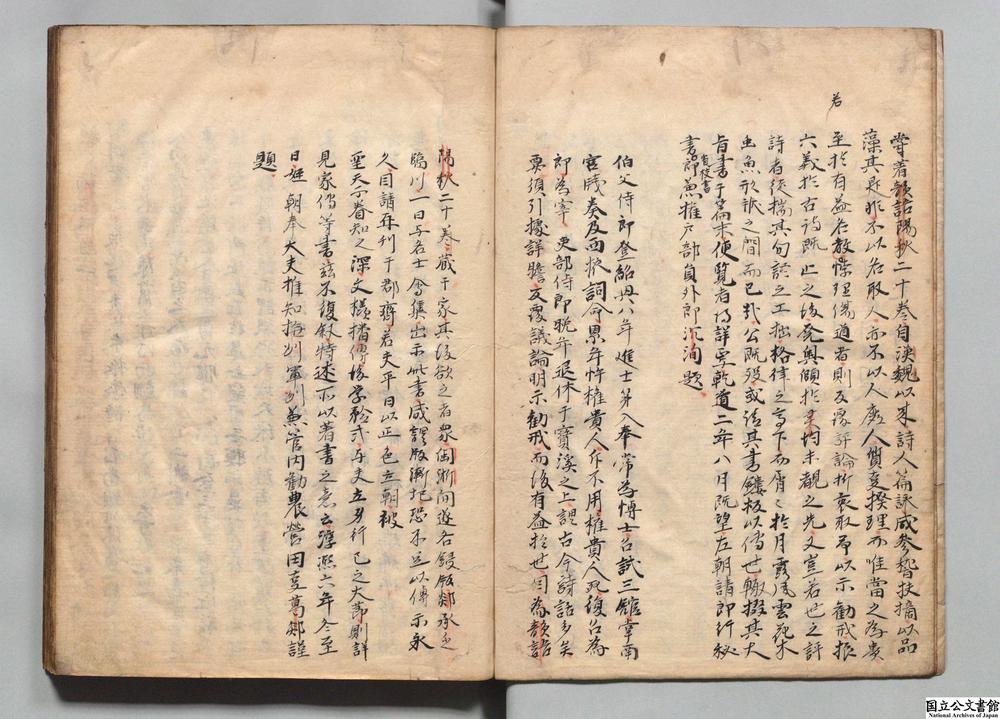 若
嘗著韻語陽秋二十卷自漢魏以來詩人篇詠咸參稽抉摘以品
藻其是非不以名取人亦不以人廢人質事揆理而唯當之為貴
至於有益名教悖理傷道者則反覆評論折衷取舍以示勸戒振
六義於古詩既亡之後發奧賾於衆均未覩之先又豈若世之評
詩者徒揣其句語之工拙格律之高下而屑々於月露風雲花木
虫魚形狀之間而已哉公既歿或借其書鏤板以傳世輙掇其大
旨書于篇末使覽者得詳焉乾道二年八月既望左朝請郎行秘
書郎兼權戶部員外郎沈洵題
伯父侍郎登紹興八年進士第入奉常為博士召試三館掌南
宮牋奏及西掖詞命累年忤權貴人斥不用權貴人死復召為
郎為宰吏部侍郎晩年退休于寶溪之上謂古今詩話多矣
要須引據詳贍反覆議論明示勸戒而後有益於世因為韻語
陽秋二十卷蔵于家其後欲之者衆閩浙間遂各鋟版郯承乏
臨川一日与名士會集出示此書咸謂版漸圯恐不足以傳示永
久因請再刊于郡齋若夫平日以正色立朝被
聖天子眷知之深文模播傳後学矜式与夫立身行己之大節則詳
見家傳等書兹不復敘特述所以著書之意云淳熙六年冬至
日姪朝奉大夫權知撫州軍州兼管内勸農營田事葛郯謹
題
国立公文書館
National Archives of Japan